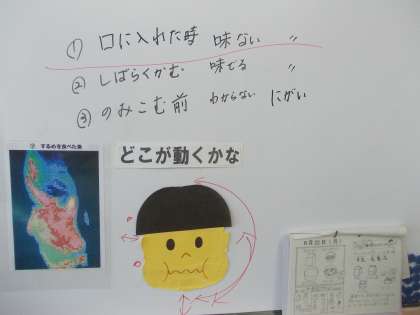 ① 口に入れた時 味ない 〃
② しばらくかむ 味でる 〃
③ のみこむ前 わからない にがい
② するめを食べた後
どこが動くかな